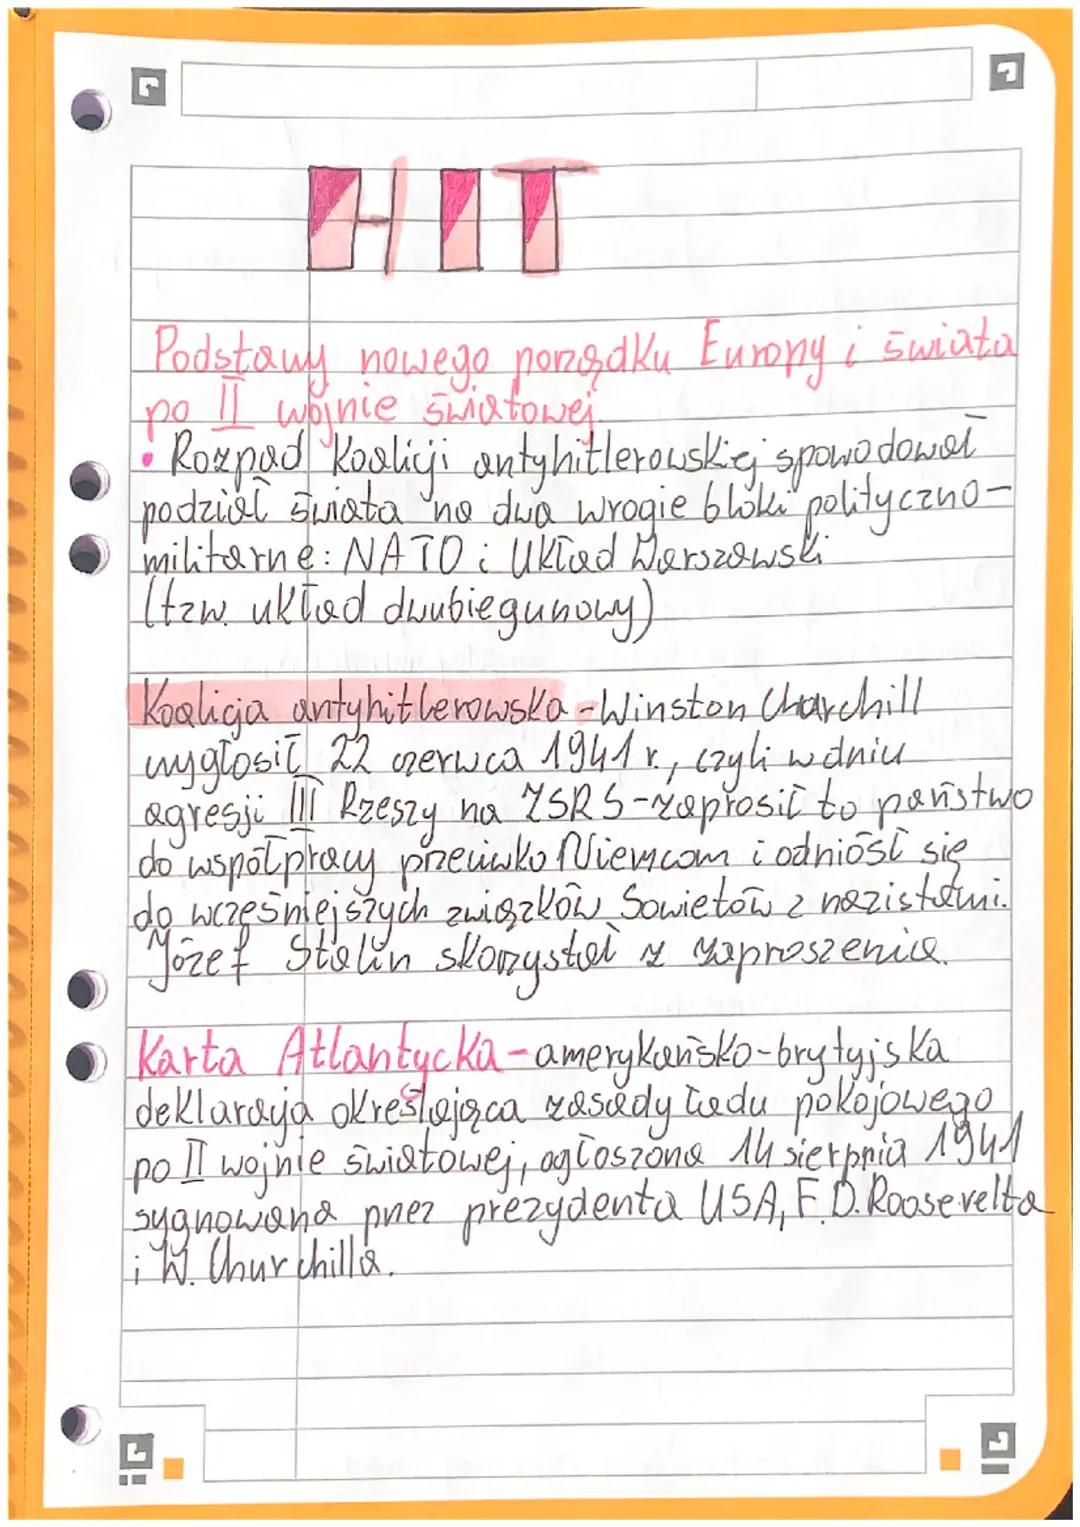 HIT
Podstawy nowego porządku Europy i świata
po II wojnie światowej.
• Rozpad Koalicji antyhitlerowskiej spowodował
podział świata na dwa wrogie bloki polityczno-
militarne: NATO i Układ Warszawski
(tzw. układ dwubiegunowy)
Koalicja antyhitlerowska - Winston Charchill
wygłosił 22 czerwca 1941 r., czyli w dniu
agresji III Rzeszy na ZSRS - zaprosił to państwo
do współpracy przeciwko Niemcom i odniósł się
do wcześniejszych związków Sowietów z nazistami.
Józef Stalin skorzystał z zaproszenia.
Karta Atlantycka - amerykańsko-brytyjska
deklaracja określająca zasady ładu pokojowego
po II wojnie światowej, ogłoszona 14 sierpnia 1941
sygnowana przez prezydenta USA, F.D. Roosevelta
i W. Churchilla.